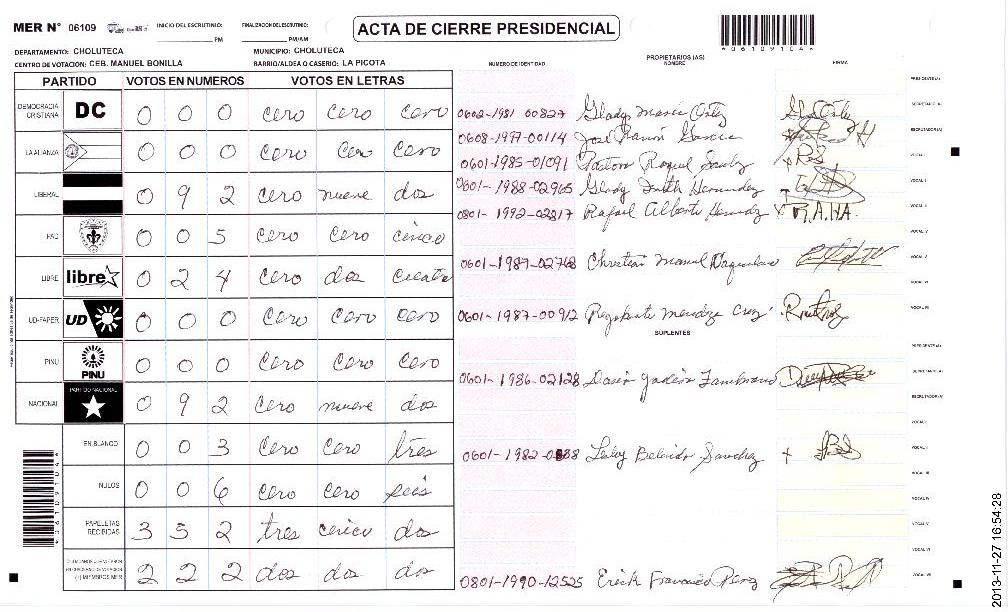 MER N° 06109 INICIO DEL ESCRUTINIO: PM FINALIZACION DEL ESCRUTINIO: PM/AM
ACTA DE CIERRE PRESIDENCIAL
*061091046*
DEPARTAMENTO: CHOLUTECA MUNICIPIO: CHOLUTECA
CENTRO DE VOTACION: CEB. MANUEL BONILLA BARRIO/ALDEA O CASERIO: LA PICOTA
NUMERO DE IDENTIDAD PROPIETARIOS (AS) NOMBRE FIRMA
PARTIDO VOTOS EN NUMEROS VOTOS EN LETRAS
DEMOCRACIA CRISTIANA DC 0 0 0 cero cero cero
LA ALIANZA 0 0 0 cero cero cero
LIBERAL 0 9 2 cero nueve dos
PAC 0 0 5 cero cero cinco
LIBRE libre 0 2 4 cero dos cuatro
UD-FAPER UD 0 0 0 cero cero cero
PINU PINU 0 0 0 cero cero cero
NACIONAL PARTIDO NACIONAL 0 9 2 cero nueve dos
EN BLANCO 0 0 3 cero cero tres
NULOS 0 0 6 cero cero seis
PAPELETAS RECIBIDAS 3 5 2 tres cinco dos
(+) MIEMBROS MER 2 2 2 dos dos dos
PRESIDENTE(A)
SECRETARIO(A)
0602-1981 00827 Gladys Maria Ortiz
ESCRUTADOR(A)
0608-1997-00114 José Ramón Garcia
VOCAL I
0601-1985-01091 Pastora Raquel
VOCAL II
0601-1988-02965 Glendy Hernandez
VOCAL III
0801-1992-02817 Rafael Alberto R.A.HA.
VOCAL IV
VOCAL V
0601-1987-02768 Christian Manuel
VOCAL VI
VOCAL VII
0601-1987-00912 Mendoza Cruz
SUPLENTES
PRESIDENTE(A)
SECRETARIO(A)
0601-1986-02128 Zambrano
ESCRUTADOR(A)
VOCAL I
VOCAL II
0601-1982 Sanchez
VOCAL III
VOCAL IV
VOCAL V
VOCAL VI
VOCAL VII
0801-1990-12525 Erick Francisco Perez
2013-11-27 16:54:28